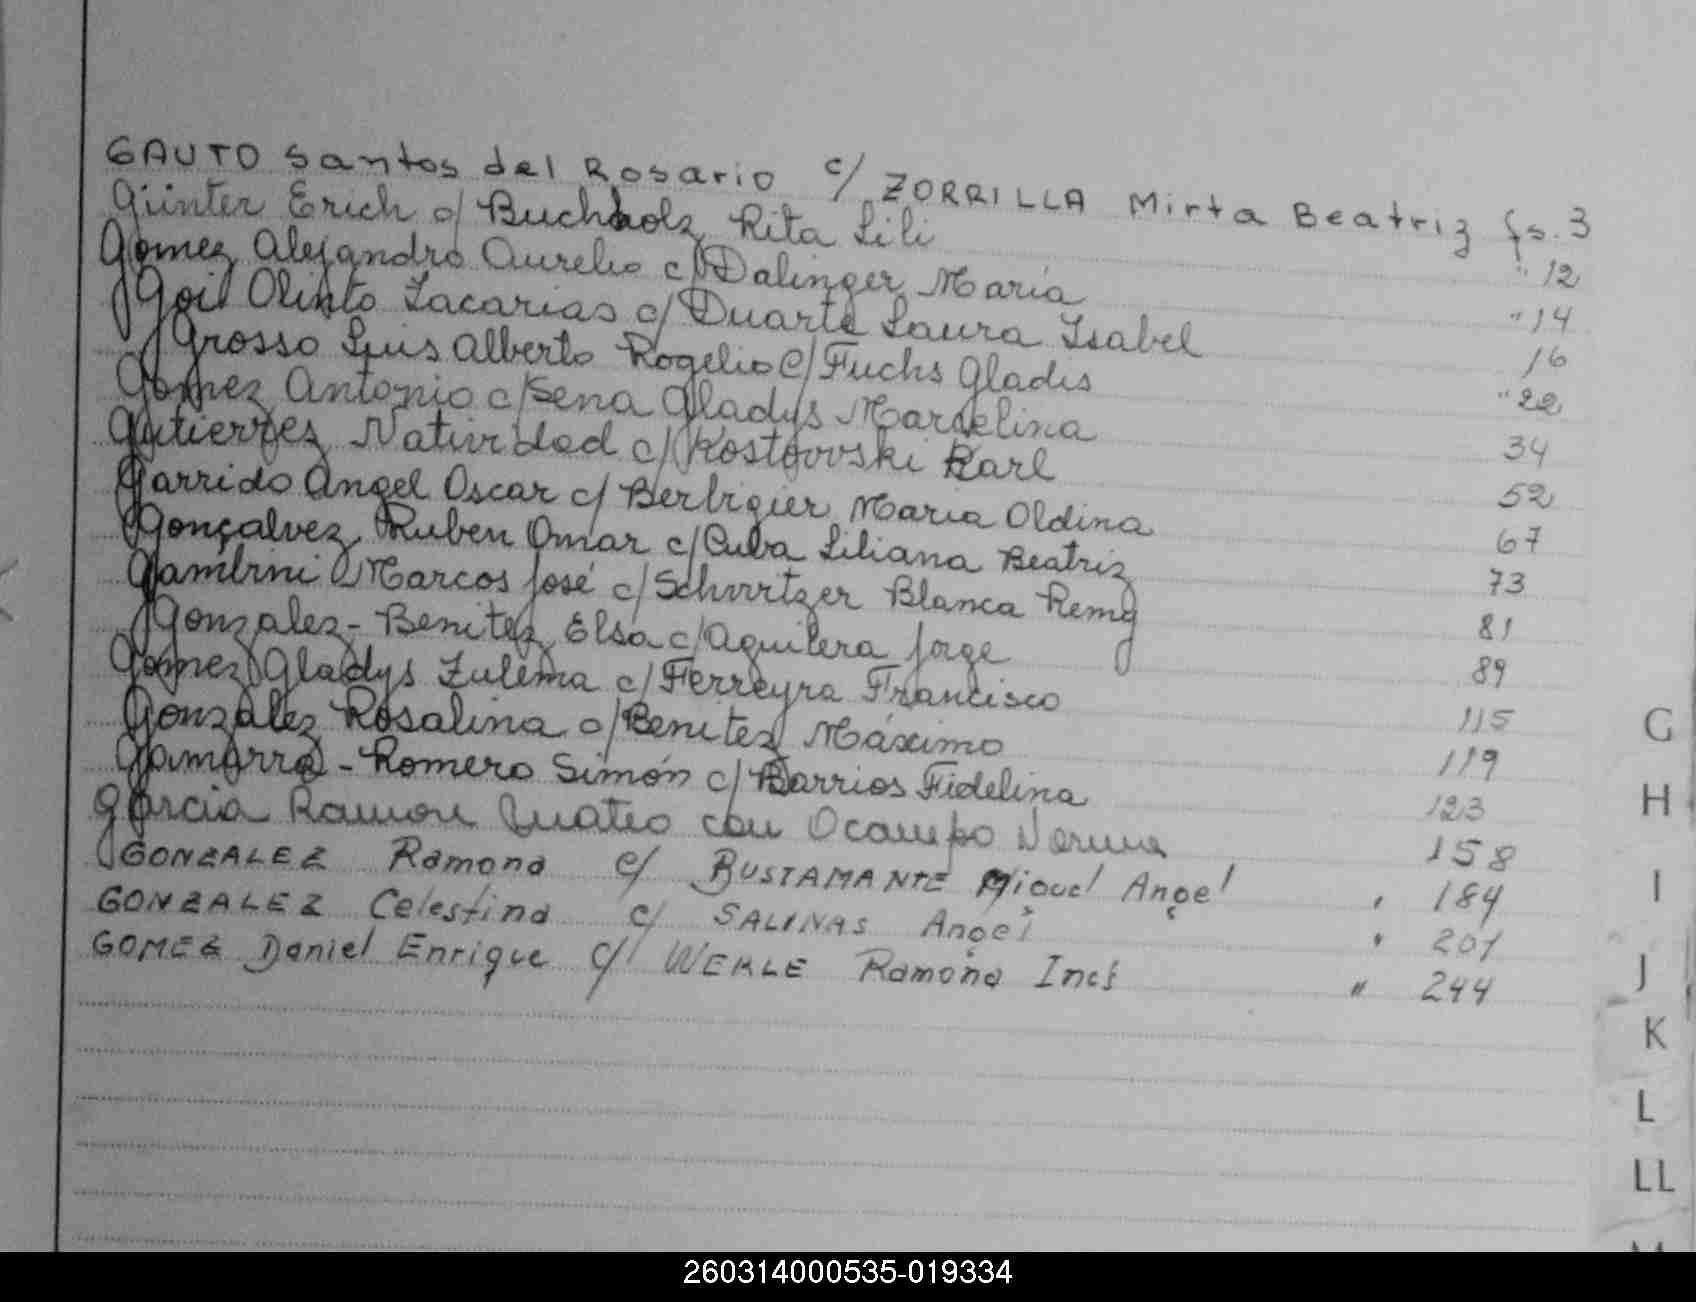 GAUTO Santos del Rosario c/ ZORRILLA Mirta Beatriz fs. 3
Günter Erich c/ Buchholz Rita Lili " 12
Gomez Alejandro Aurelio c/ Dalinger María " 14
Goil Olinto Zacarias c/ Duarte Laura Isabel 16
Grosso Luis Alberto Rogelio c/ Fuchs Gladis " 22
Gomez Antonio c/ Sena Gladys Marcelina 34
Gutierrez Natividad c/ Kostovvski Karl 52
Garrido Angel Oscar c/ Berbigier Maria Oldina 67
Gonçalvez Ruben Omar c/ Cuba Liliana Beatriz 73
Gambini Marcos José c/ Schvvrtzer Blanca Remg 81
Gonzalez - Benitez Elsa c/ Aguilera Jorge 89
Gomez Gladys Zulema c/ Ferreyra Francisco 115
González Rosalina c/ Benitez Máximo 119
Gamarra - Romero Simón c/ Barrios Fidelina 123
Garcia Ramon Mateo con Ocampo Norma 158
GONZALEZ Ramona c/ BUSTAMANTE Miguel Angel " 184
GONZALEZ Celestina c/ SALINAS Angel " 201
GOMEZ Daniel Enrique c/ WERLE Ramona Inés " 244
G
H
I
J
K
L
LL
M
260314000535-019334